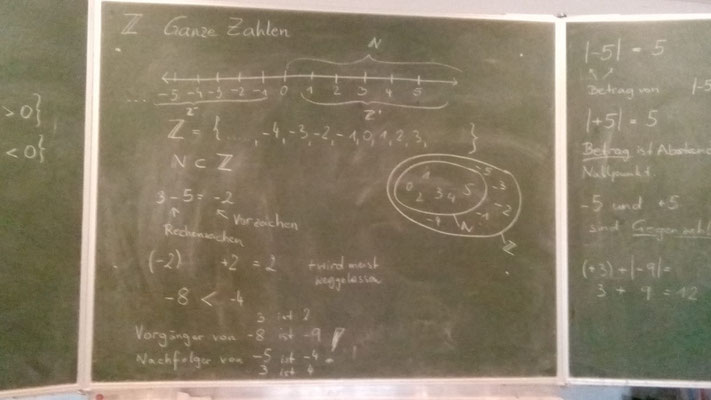 > 0}
< 0}
ℤ Ganze Zahlen
ℕ
-5 -4 -3 -2 -1 0 1 2 3 4 5
.... ℤ⁻ ℤ⁺
ℤ = { ...., -4, -3, -2, -1, 0, 1, 2, 3, }
ℕ ⊂ ℤ
3 - 5 = -2
Vorzeichen
Rechenzeichen
0 1 2 3 4 5 -5 -3 -2 -1 -4 ℕ ℤ
(-2) +2 = 2 + wird meist
weggelassen
-8 < -4
3 ist 2
Vorgänger von -8 ist -9 !
Nachfolger von -5 ist -4
3 ist 4
|-5| = 5
Betrag von |-5
|+5| = 5
Betrag ist Abstand
Nullpunkt
-5 und +5
sind Gegenzahl
(+3) + |-9| =
3 + 9 = 12